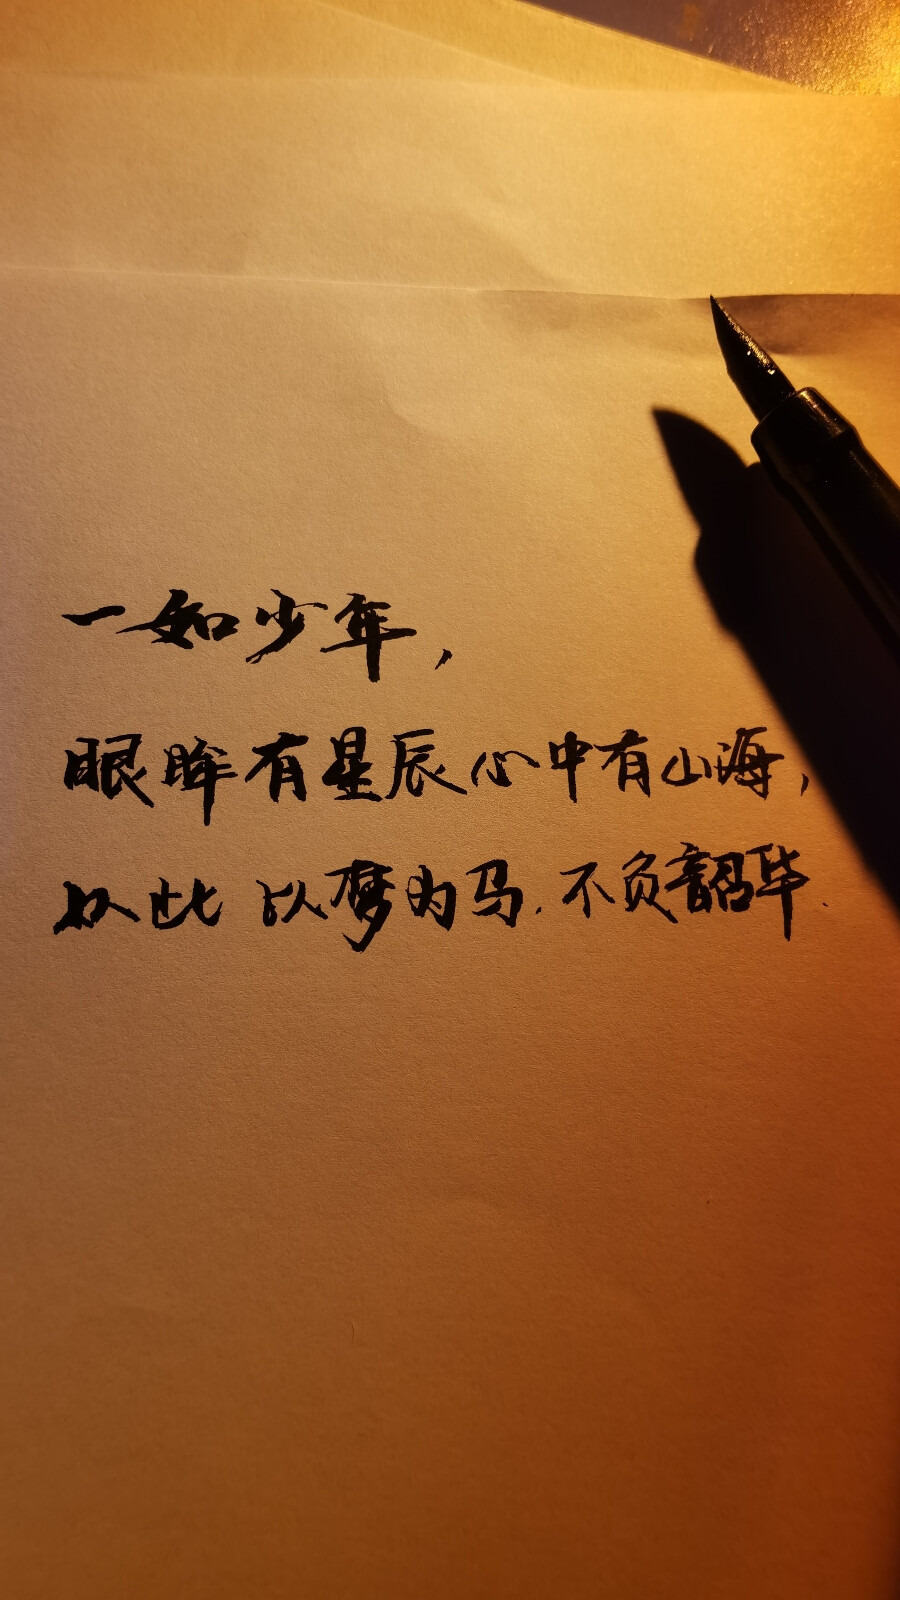 一如少年，
眼眸有星辰心中有山海，
从此 以梦为马.不负韶华.